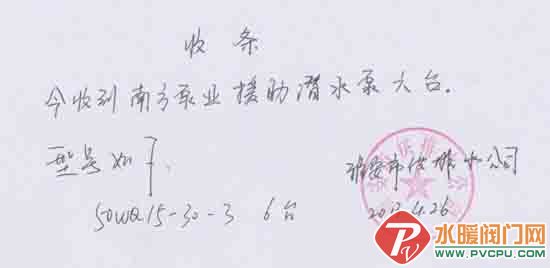 收条
今收到南方泵业援助潜水泵六台.
型号如下、
50WQ15-30-3 6台
雅安市供排水公司
2013.4.26
水暖阀门网
WWW.PVCPU.COM